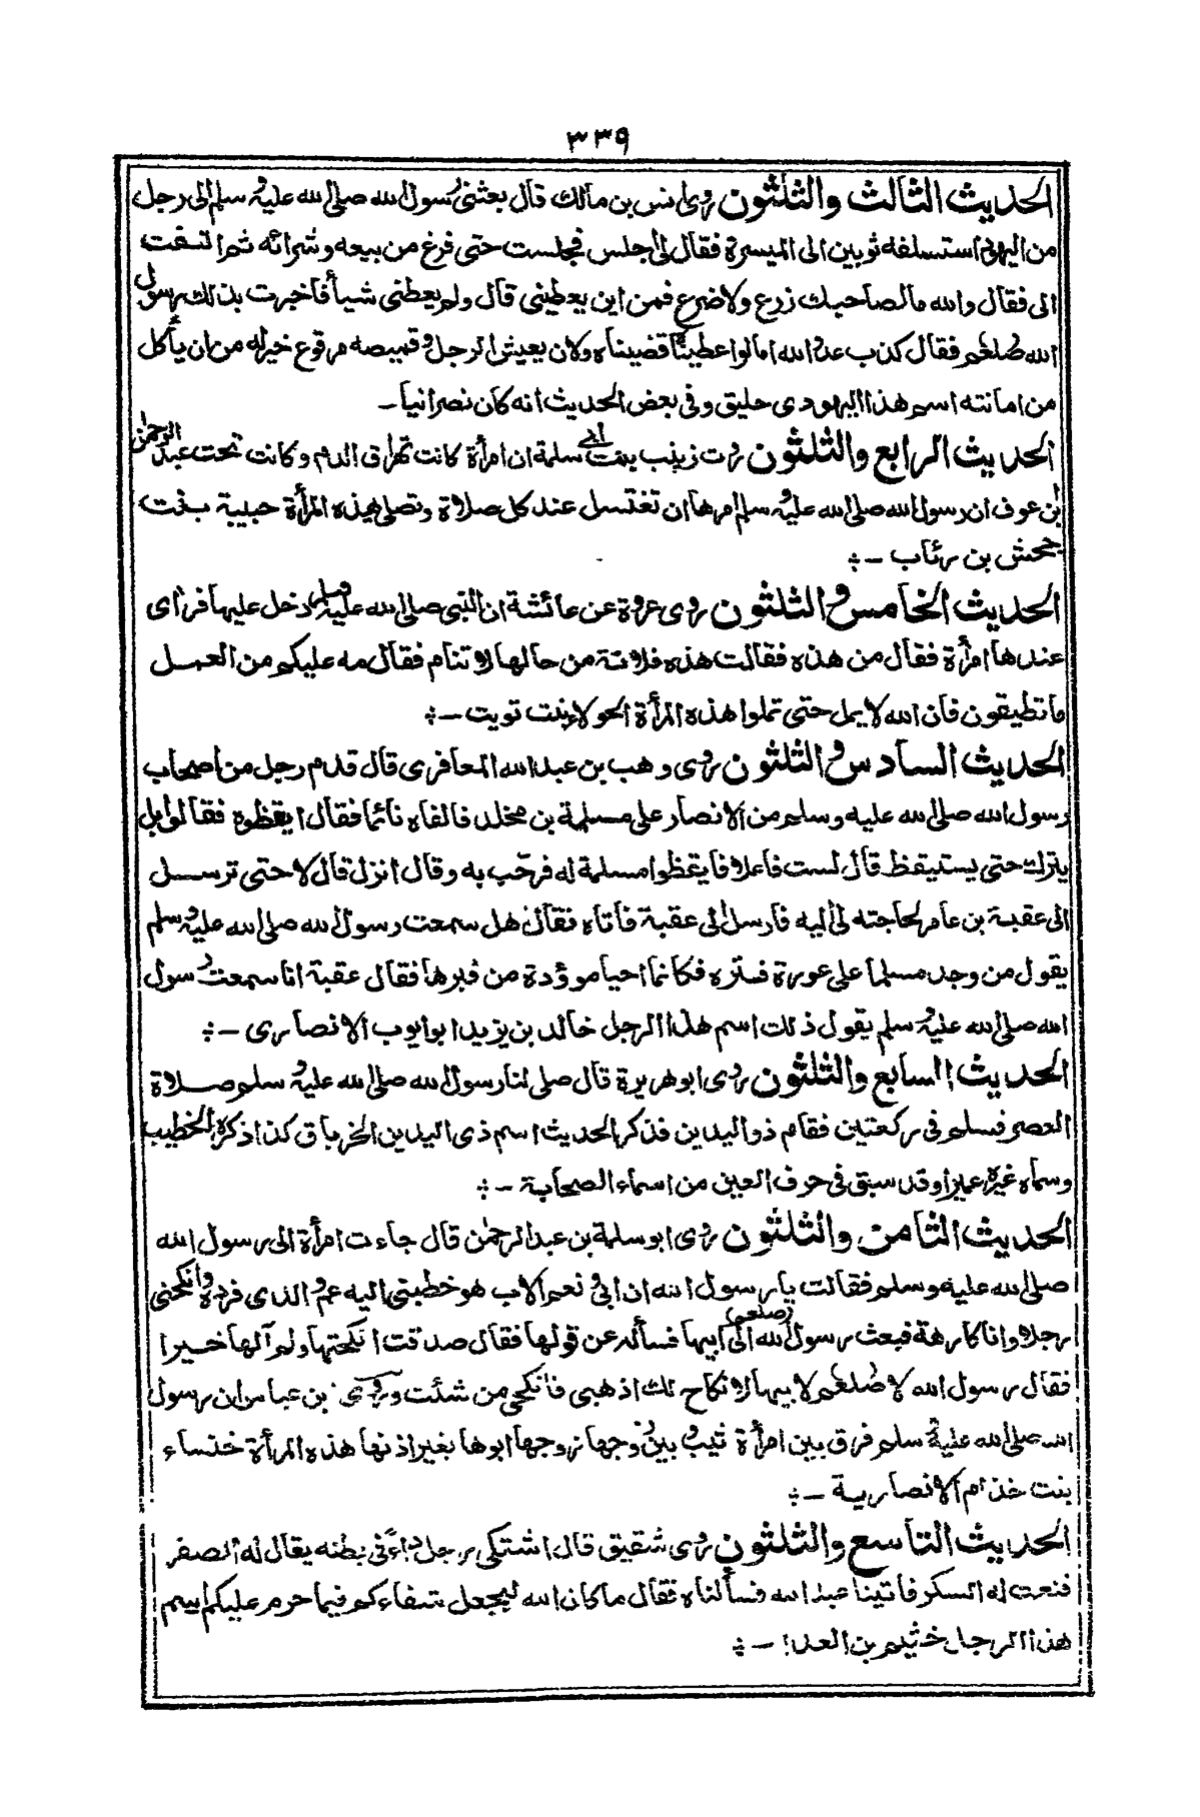 ٣٣٩
الحديث الثالث والثلثون روى انس بن مالك قال بعثنى رسول الله صلى الله عليه وسلم الى رجل
من اليهود استسلفه ثوبين الى الميسرة فقال لى اجلس فجلست حتى فرغ من بيعه وشرائه ثم التفت
الى فقال والله مالصاحبك زرع ولا ضرع فمن اين يعطينى قال ولم يعطنى شيأ فاخبرت بذلك رسول
الله صلعم فقال كذب عدو الله اما لو اعطيتنا قضيناه ولان يعيش الرجل وقميصه مرقوع خير له من ان ياكل
من امانته اسم هذا اليهودى حليق وفى بعض الحديث انه كان نصرانيا -
الحديث الرابع والثلثون روت زينب بنت ابى سلمة ان امرأة كانت تهراق الدم وكانت تحت عبد الرحمن
بن عوف ان رسول الله صلى الله عليه وسلم امرها ان تغتسل عند كل صلاة وتصلى هذه المرأة حبيبة بنت
جحش بن رئاب -
الحديث الخامس والثلثون روى عروة عن عائشة ان النبى صلى الله عليه وسلم دخل عليها فراى
عندها امرأة فقال من هذه فقالت هذه فلانة من حالها لا تنام فقال مه عليكم من العمل
ما تطيقون فان الله لا يمل حتى تملوا هذه المرأة الحولاء بنت تويت -
الحديث السادس والثلثون روى وهب بن عبد الله المعافرى قال قدم رجل من اصحاب
رسول الله صلى الله عليه وسلم من الانصار على مسلمة بن مخلد فالفاه نائما فقال ايقظوه فقالوا بل
يترك حتى يستيقظ قال لست فاعلا فايقظوا مسلمة له فرحب به وقال انزل قال لا حتى ترسل
الى عقبة بن عامر لحاجته لى اليه فارسل الى عقبة فاتاه فقال هل سمعت رسول الله صلى الله عليه وسلم
يقول من وجد مسلما على عورة فستره فكانما احيا موؤدة من قبرها فقال عقبة انا سمعت رسول
الله صلى الله عليه وسلم يقول ذلك اسم هذا الرجل خالد بن يزيد ابو ايوب الانصارى -
الحديث السابع والثلثون روى ابو هريرة قال صلى لنا رسول الله صلى الله عليه وسلم صلاة
العصر فسلم فى ركعتين فقام ذو اليدين فذكر الحديث اسم ذى اليدين الخرباق كذا ذكره الخطيب
وسماه غيره عميرا وقد سبق فى حرف العين من اسماء الصحابة -
الحديث الثامن والثلثون روى ابو سلمة بن عبد الرحمن قال جاءت امرأة الى رسول الله
صلى الله عليه وسلم فقالت يا رسول الله ان ابى ونعم الاب هو خطبنى اليه عم ولدى فرده وانكحنى
رجلا وانا كارهة فبعث رسول الله (صلعم) الى ابيها فسأله عن قولها فقال صدقت انكحتها ولم آلها خيرا
فقال رسول الله صلعم لابيها لا نكاح لك اذهبى فانكحى من شئت وروى بن عباس ان رسول
الله صلى الله عليه وسلم فرق بين امرأة ثيب وبين زوجها زوجها ابوها بغير اذنها هذه المرأة خنساء
بنت خذام الانصارية -
الحديث التاسع والثلثون روى شقيق قال اشتكى رجل داء فى بطنه يقال له الصفر
فنعت له السكر فاتينا عبد الله فسألناه فقال ما كان الله ليجعل شفاءكم فيما حرم عليكم اسم
هذا الرجل خثيم بن العدا -